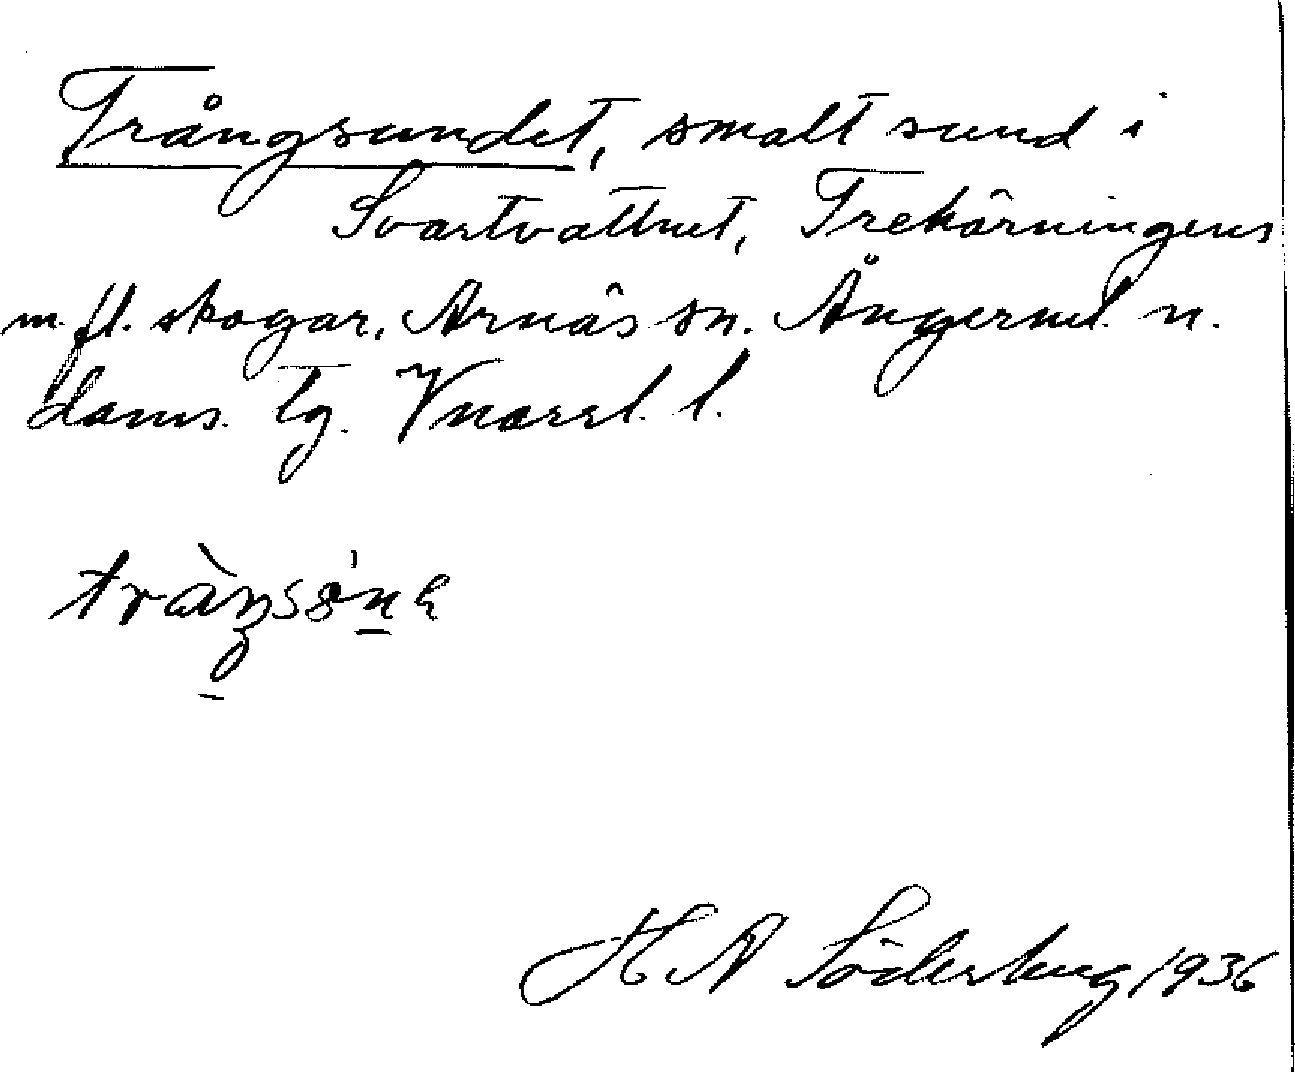 Trångsundet, smalt sund i
Svartvattnet, Trekärningens
m. fl. skogar, Arnäs sn. Ångerml. n.
doms. tg. Vnorrl. l.
H A Söderberg 1936